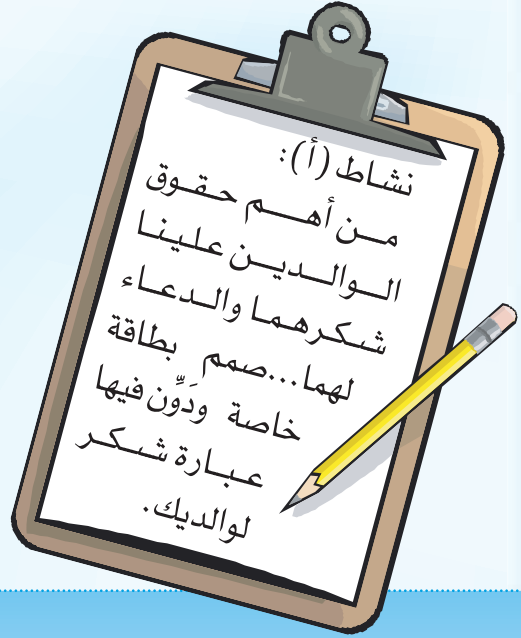 نشاط (أ):
مـن أهـم حقـوق
الـوالـديـن علينـا
شـكـرهـمـا والـدعـاء
لهما...صمم بطاقة
خاصة ودَوِّن فيها
عـبـارة شـكـر
لوالديك.